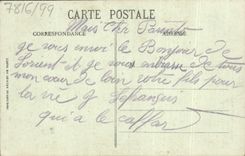 7816/99
CARTE POSTALE
Mais Cher Parents
CORRESPONDANCE
je vous envoi le Bonjour de
Lorient et je vous embrasse de tous
mon cœur de loin votre fils pour
la vie J Lefrangers
qui a le caffar